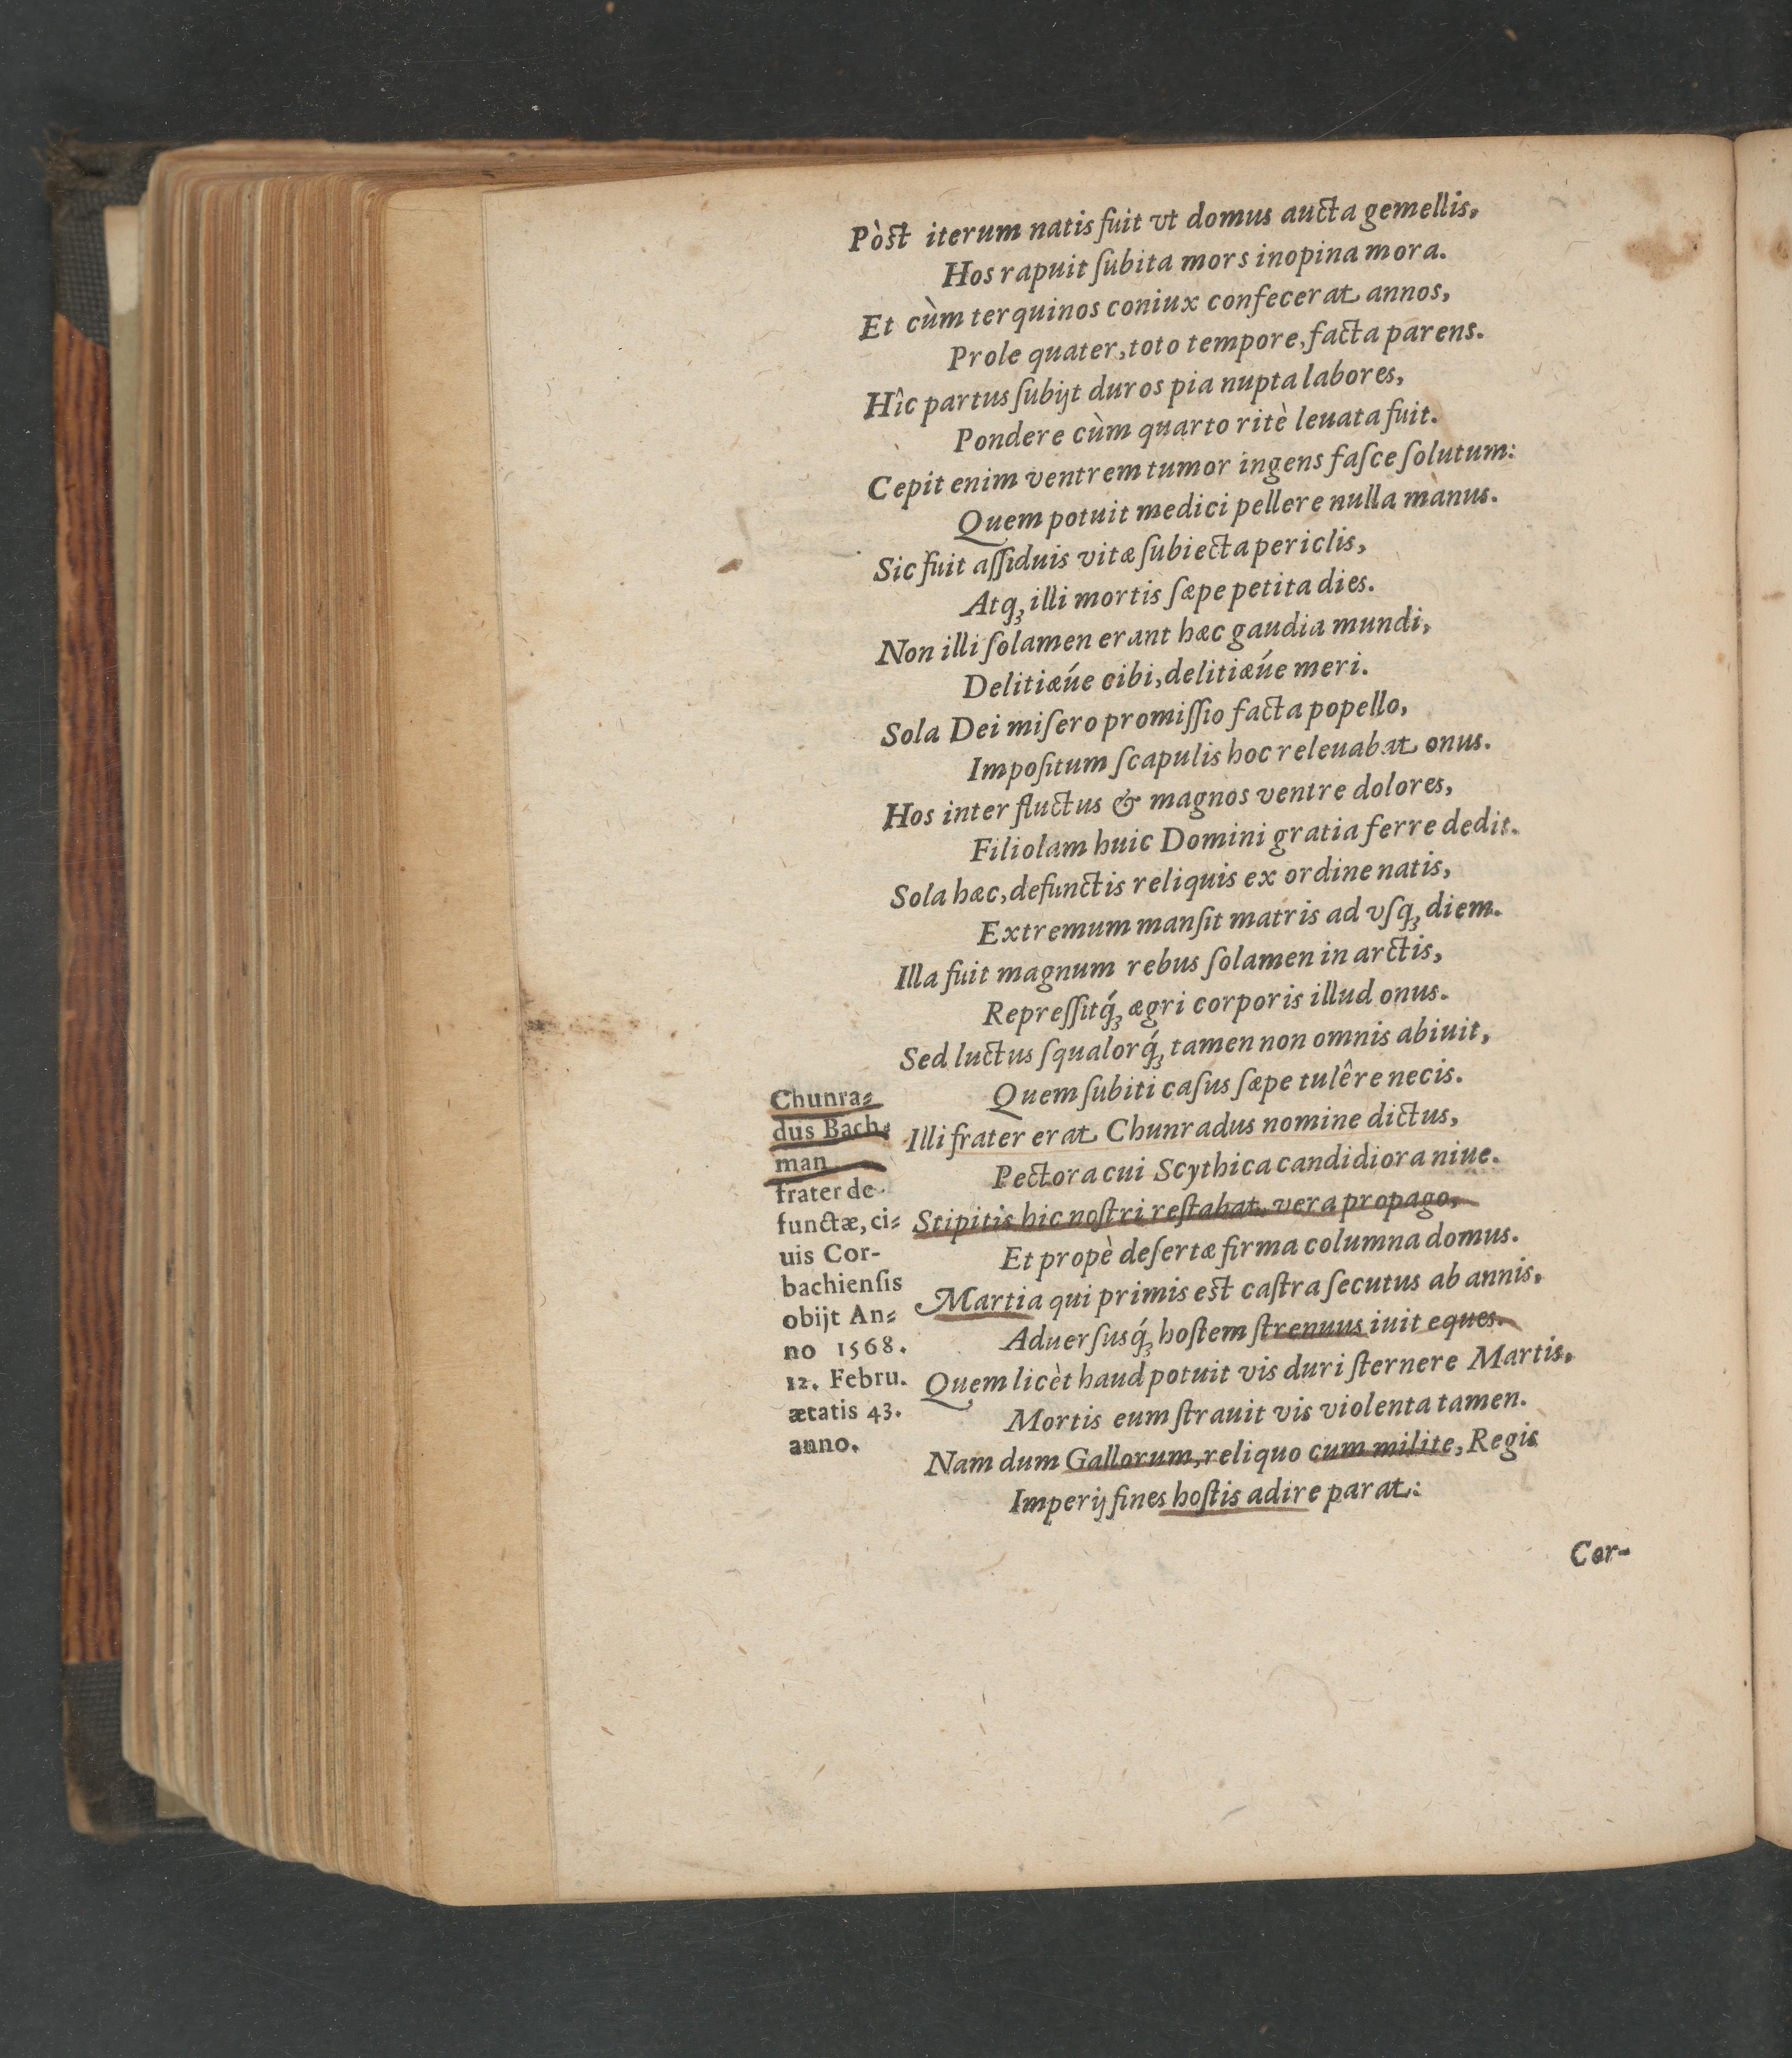 Pòſt iterum natis fuit vt domus aucta gemellis,
Hos rapuit ſubita mors inopina mora.
Et cùm ter quinos coniux confecerat annos,
Prole quater, toto tempore, facta parens.
Hîc partus ſubijt duros pia nupta labores,
Pondere cùm quarto ritè leuata fuit.
Cepit enim ventrem tumor ingens faſce ſolutum:
Quem potuit medici pellere nulla manus.
Sic fuit aſſiduis vitæ ſubiecta periclis,
Atq́ꝫ illi mortis ſæpe petita dies.
Non illi ſolamen erant hæc gaudia mundi,
Delitiæúe cibi, delitiæúe meri.
Sola Dei miſero promiſſio facta popello,
Impoſitum ſcapulis hoc releuabat onus.
Hos inter fluctus & magnos ventre dolores,
Filiolam huic Domini gratia ferre dedit.
Sola hæc, defunctis reliquis ex ordine natis,
Extremum manſit matris ad vſqꝫ diem.
Illa fuit magnum rebus ſolamen in arctis,
Repreſſitq́ꝫ ægri corporis illud onus.
Sed luctus ſqualorq́ꝫ tamen non omnis abiuit,
Quem ſubiti caſus ſæpe tulêre necis.
Illi frater erat Chunradus nomine dictus,
Pectora cui Scythica candidiora niue.
Stipitis hic noſtri reſtabat vera propago,
Et propè deſertæ firma columna domus.
Martia qui primis eſt caſtra ſecutus ab annis,
Aduerſusq́ꝫ hoſtem ſtrenuus iuit eques.
Quem licèt haud potuit vis duri ſternere Martis,
Mortis eum ſtrauit vis violenta tamen.
Nam dum Gallorum, reliquo cum milite, Regis
Imperij fines hoſtis adire parat:
Cor-
Chunra⸗
dus Bach⸗
man
frater de
functæ, ci⸗
uis Cor-
bachienſis
obijt An⸗
no 1568.
12. Febru.
ætatis 43.
anno.